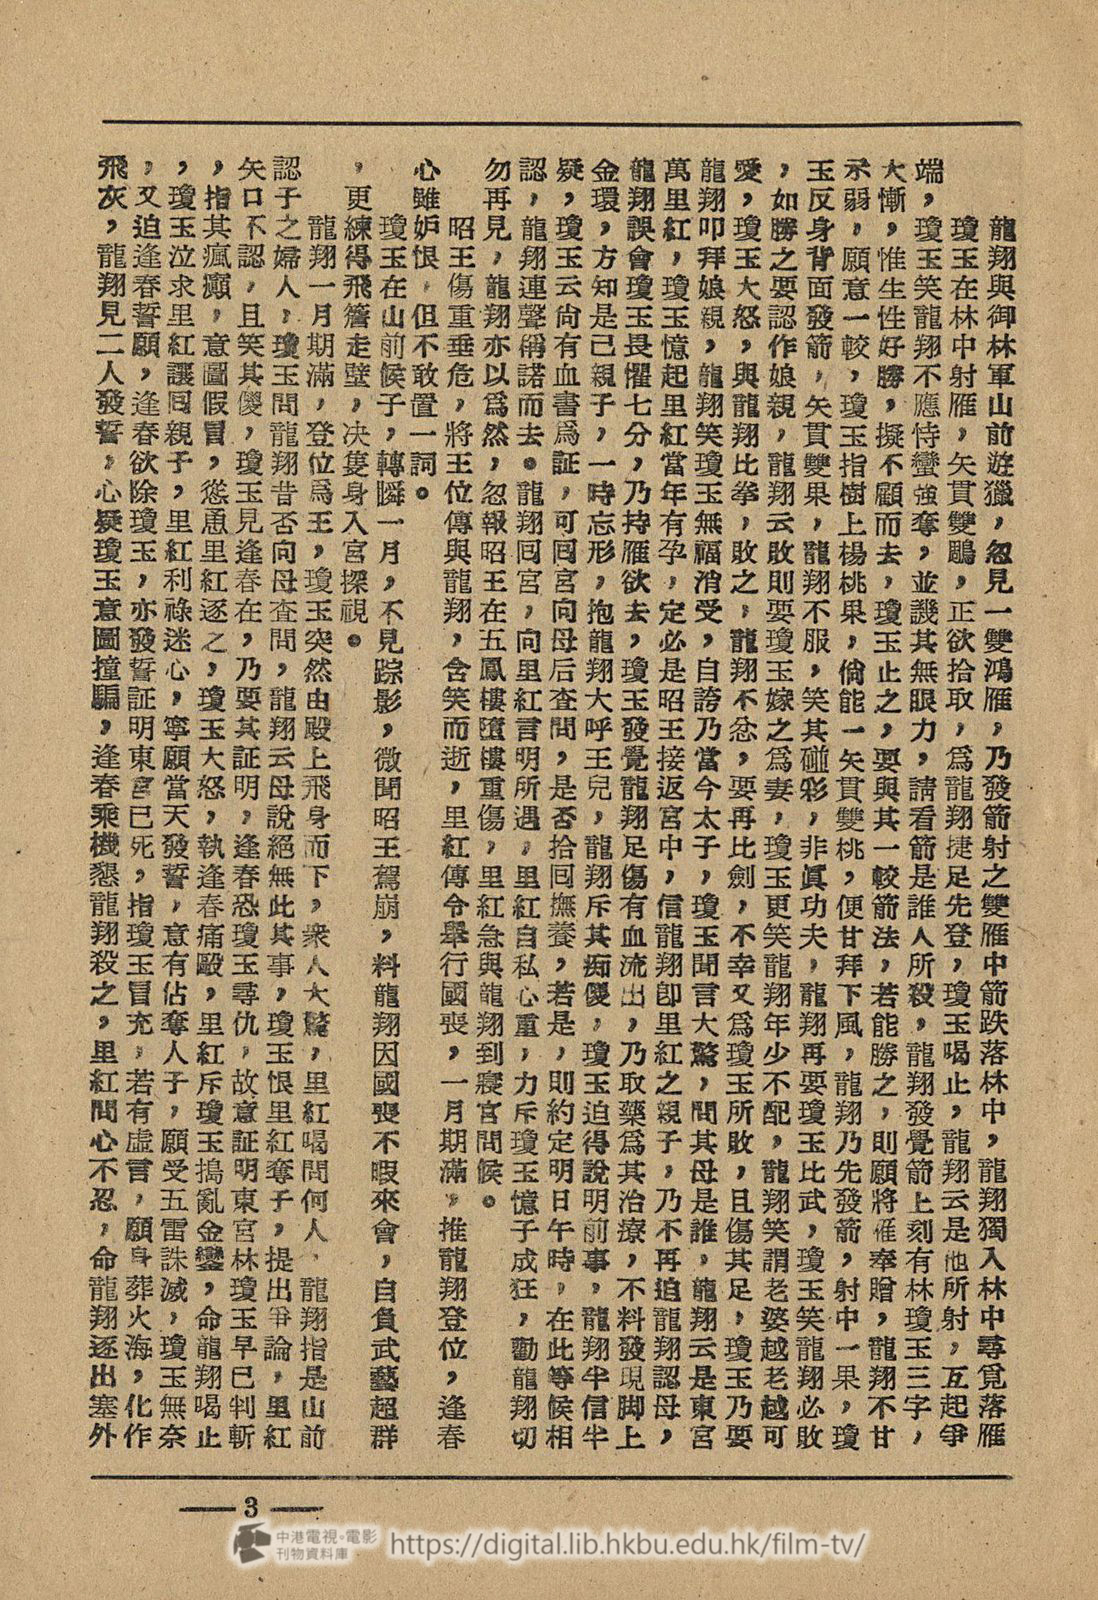 龍翔與御林軍山前遊獵，忽見一雙鴻雁，乃發箭射之雙雁中箭跌落林中，龍翔獨入林中尋覓落雁
瓊玉在林中射雁，矢貫雙鵰，正欲拾取，爲龍翔捷足先登，瓊玉喝止，龍翔云是他所射，互起爭
端，瓊玉笑龍翔不應恃蠻強奪，並譏其無眼力，請看箭是誰人所殺，龍翔發覺箭上刻有林瓊玉三字，
大慚，惟生性好勝，擬不顧而去，瓊玉止之，要與其一較箭法，若能勝之，則願將雁奉贈，龍翔不甘
示弱，願意一較，瓊玉指樹上楊桃果，倘能一矢貫雙桃，便甘拜下風，龍翔乃先發箭，射中一果，瓊
玉反身背面發箭，矢貫雙果，龍翔不服，笑其碰彩，非眞功夫，龍翔再要瓊玉比武，瓊玉笑龍翔必敗
，如勝之要認作娘親，龍翔云敗則要瓊玉嫁之爲妻，瓊玉更笑龍翔年少不配，龍翔笑謂老婆越老越可
愛，瓊玉大怒，與龍翔比拳，敗之，龍翔不忿，要再比劍，不幸又爲瓊玉所敗，且傷其足，瓊玉乃要
龍翔叩拜娘親，龍翔笑瓊玉無福消受，自誇乃當今太子，瓊玉聞言大驚，問其母是誰，龍翔云是東宮
萬里紅，瓊玉憶起里紅當年有孕，定必是昭王接返宮中，信龍翔卽里紅之親子，乃不再迫龍翔認母，
龍翔誤會瓊玉畏懼七分，乃持雁欲去，瓊玉發覺龍翔足傷有血流出，乃取藥爲其治療，不料發現脚上
金環，方知是己親子，一時忘形，抱龍翔大呼王兒，龍翔斥其痴儍，瓊玉迫得說明前事，龍翔半信半
疑，瓊玉云尙有血書爲証，可囘宮向母后査問，是否拾囘撫養，若是，則約定明日午時，在此等候相
認，龍翔連聲稱諾而去。龍翔囘宮，向里紅言明所遇，里紅自私心重，力斥瓊玉憶子成狂，勸龍翔切
勿再見，龍翔亦以爲然，忽報昭王在五鳳樓墮樓重傷，里紅急與龍翔到寢宮問候。
昭王傷重垂危，將王位傳與龍翔，含笑而逝，里紅傳令舉行國喪，一月期滿，推龍翔登位，逢春
心雖妒恨，但不敢置一詞。
瓊玉在山前候子，轉瞬一月，不見踪影，微聞昭王駕崩，料龍翔因國喪不暇來會，自負武藝超群
，更練得飛簷走壁，决隻身入宮探視。
龍翔一月期滿，登位爲王，瓊玉突然由殿上飛身而下，衆人大驚，里紅喝問何人，龍翔指是山前
認子之婦人，瓊玉問龍翔昔否向母査問，龍翔云母說絕無此其事，瓊玉恨里紅奪子，提出爭論，里紅
矢口不認，且笑其儍，瓊玉見逢春在，乃要其証明，逢春恐瓊玉尋仇，故意証明東宮林瓊玉早已判斬
，指其瘋癲，意圖假冒，慫恿里紅逐之，瓊玉大怒，執逢春痛毆，里紅斥瓊玉搗亂金鑾，命龍翔喝止
，瓊玉泣求里紅讓囘親子，里紅利祿迷心，寧願當天發誓，意有佔奪人子，願受五雷誅滅，瓊玉無奈
，又迫逢春誓願，逢春欲除瓊玉，亦發誓証明東宮已死，指瓊玉冒充，若有虛言，願身葬火海，化作
飛灰，龍翔見二人發誓，心疑瓊玉意圖撞騙，逢春乘機懇龍翔殺之，里紅問心不忍，命龍翔逐出塞外
3
中港電視·電影
刊物資料庫
https://digital.lib.hkbu.edu.hk/film-tv/